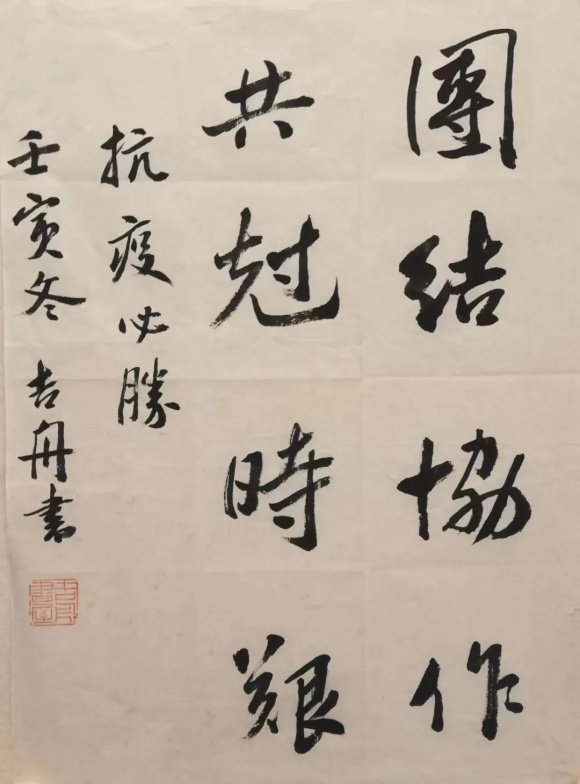 團結協作
共尅時艱
抗疫必勝
壬寅冬 吉舟書